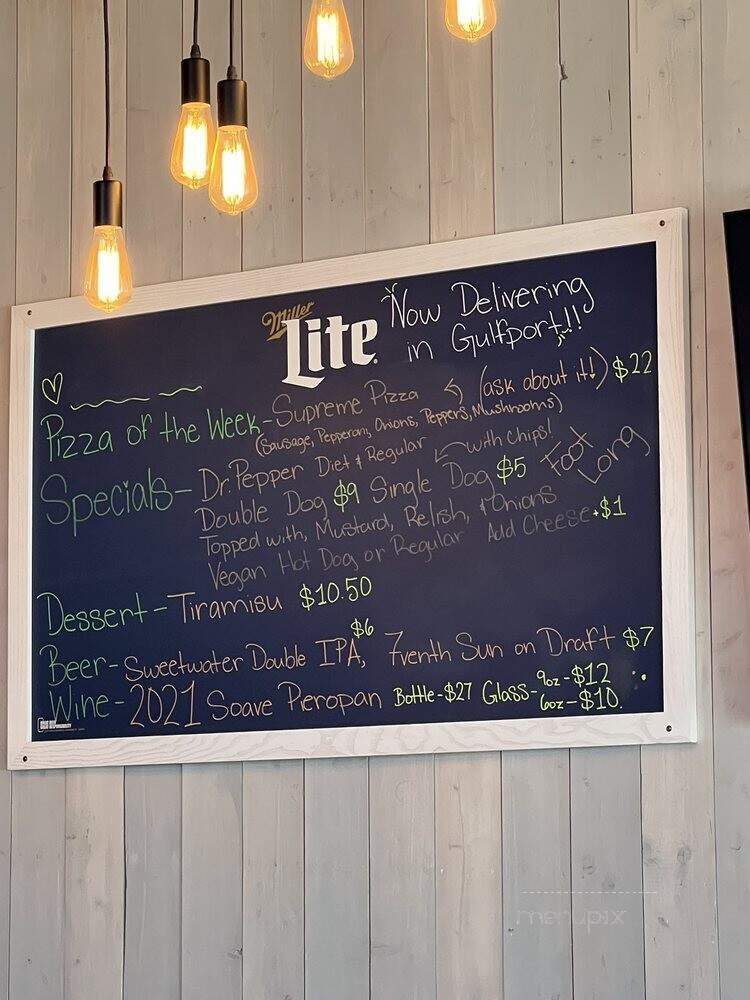 Miller Lite
Now Delivering
in Gulfport!!
Pizza of the Week - Supreme Pizza (ask about it!) $22
(Sausage, Pepperoni, Onions, Peppers, Mushrooms)
Specials - Dr. Pepper Diet & Regular
with chips!
Double Dog $9 Single Dog $5 Foot Long
Topped with, Mustard, Relish, & Onions
Vegan Hot Dog or Regular Add Cheese +$1
Dessert - Tiramisu $10.50
Beer - Sweetwater Double IPA, $6 7venth Sun on Draft $7
Wine - 2021 Soave Pieropan Bottle - $27 Glass - 9oz - $12
6oz - $10.
menupix